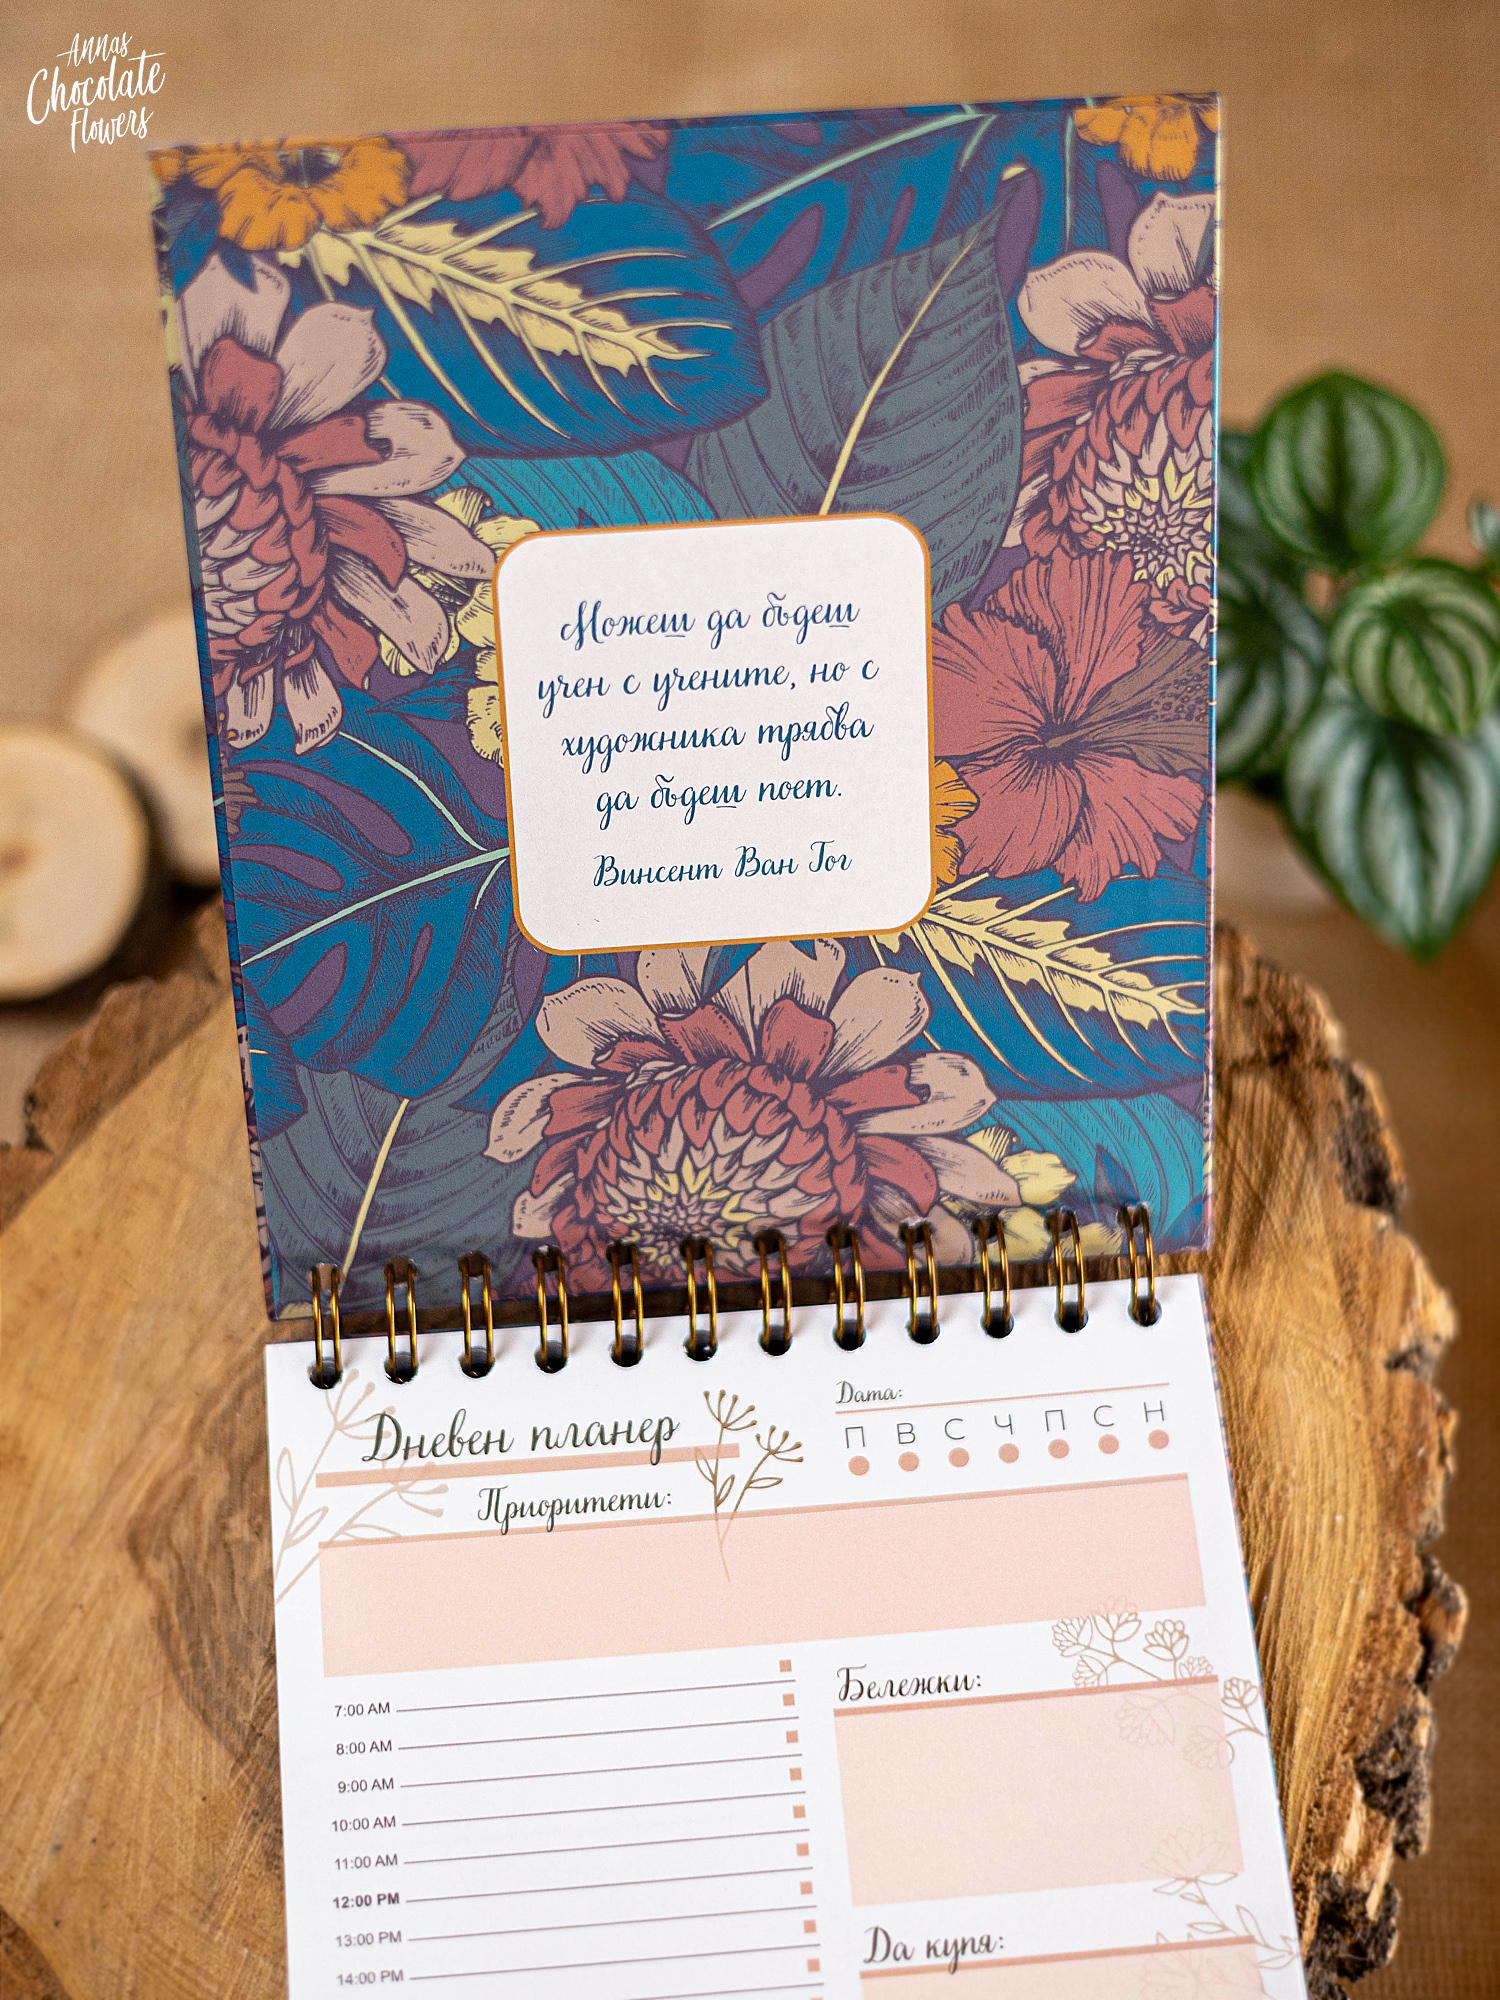 Annas
Chocolate
Flowers
Можеш да бъдеш
учен с учените, но с
художника трябва
да бъдеш поет.
Винсент Ван Гог
Дневен планер
Дата:
П В С Ч П С Н
Приоритети:
7:00 AM
8:00 AM
9:00 AM
10:00 AM
11:00 AM
12:00 PM
13:00 PM
14:00 PM
Бележки:
Да купя: